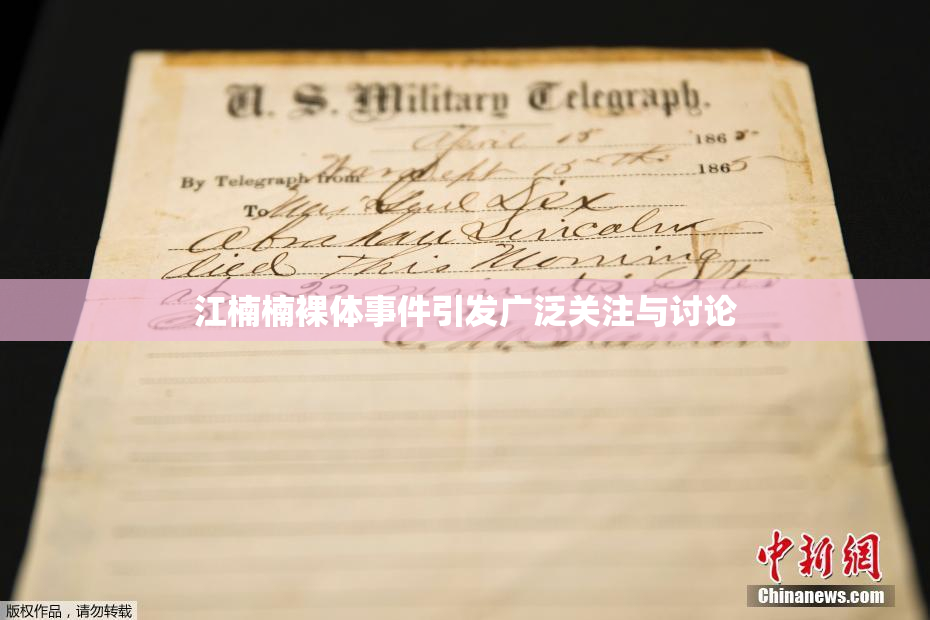 U. S. Military Telegraph.
April 15 1865
By Telegraph from War Dept 15th 1865
To Maj Genl Dix
Abraham Lincoln
died This Morning
at 22 minutes after
江楠楠裸体事件引发广泛关注与讨论
E. M. Stanton
中新网
Chinanews.com
版权作品，请勿转载